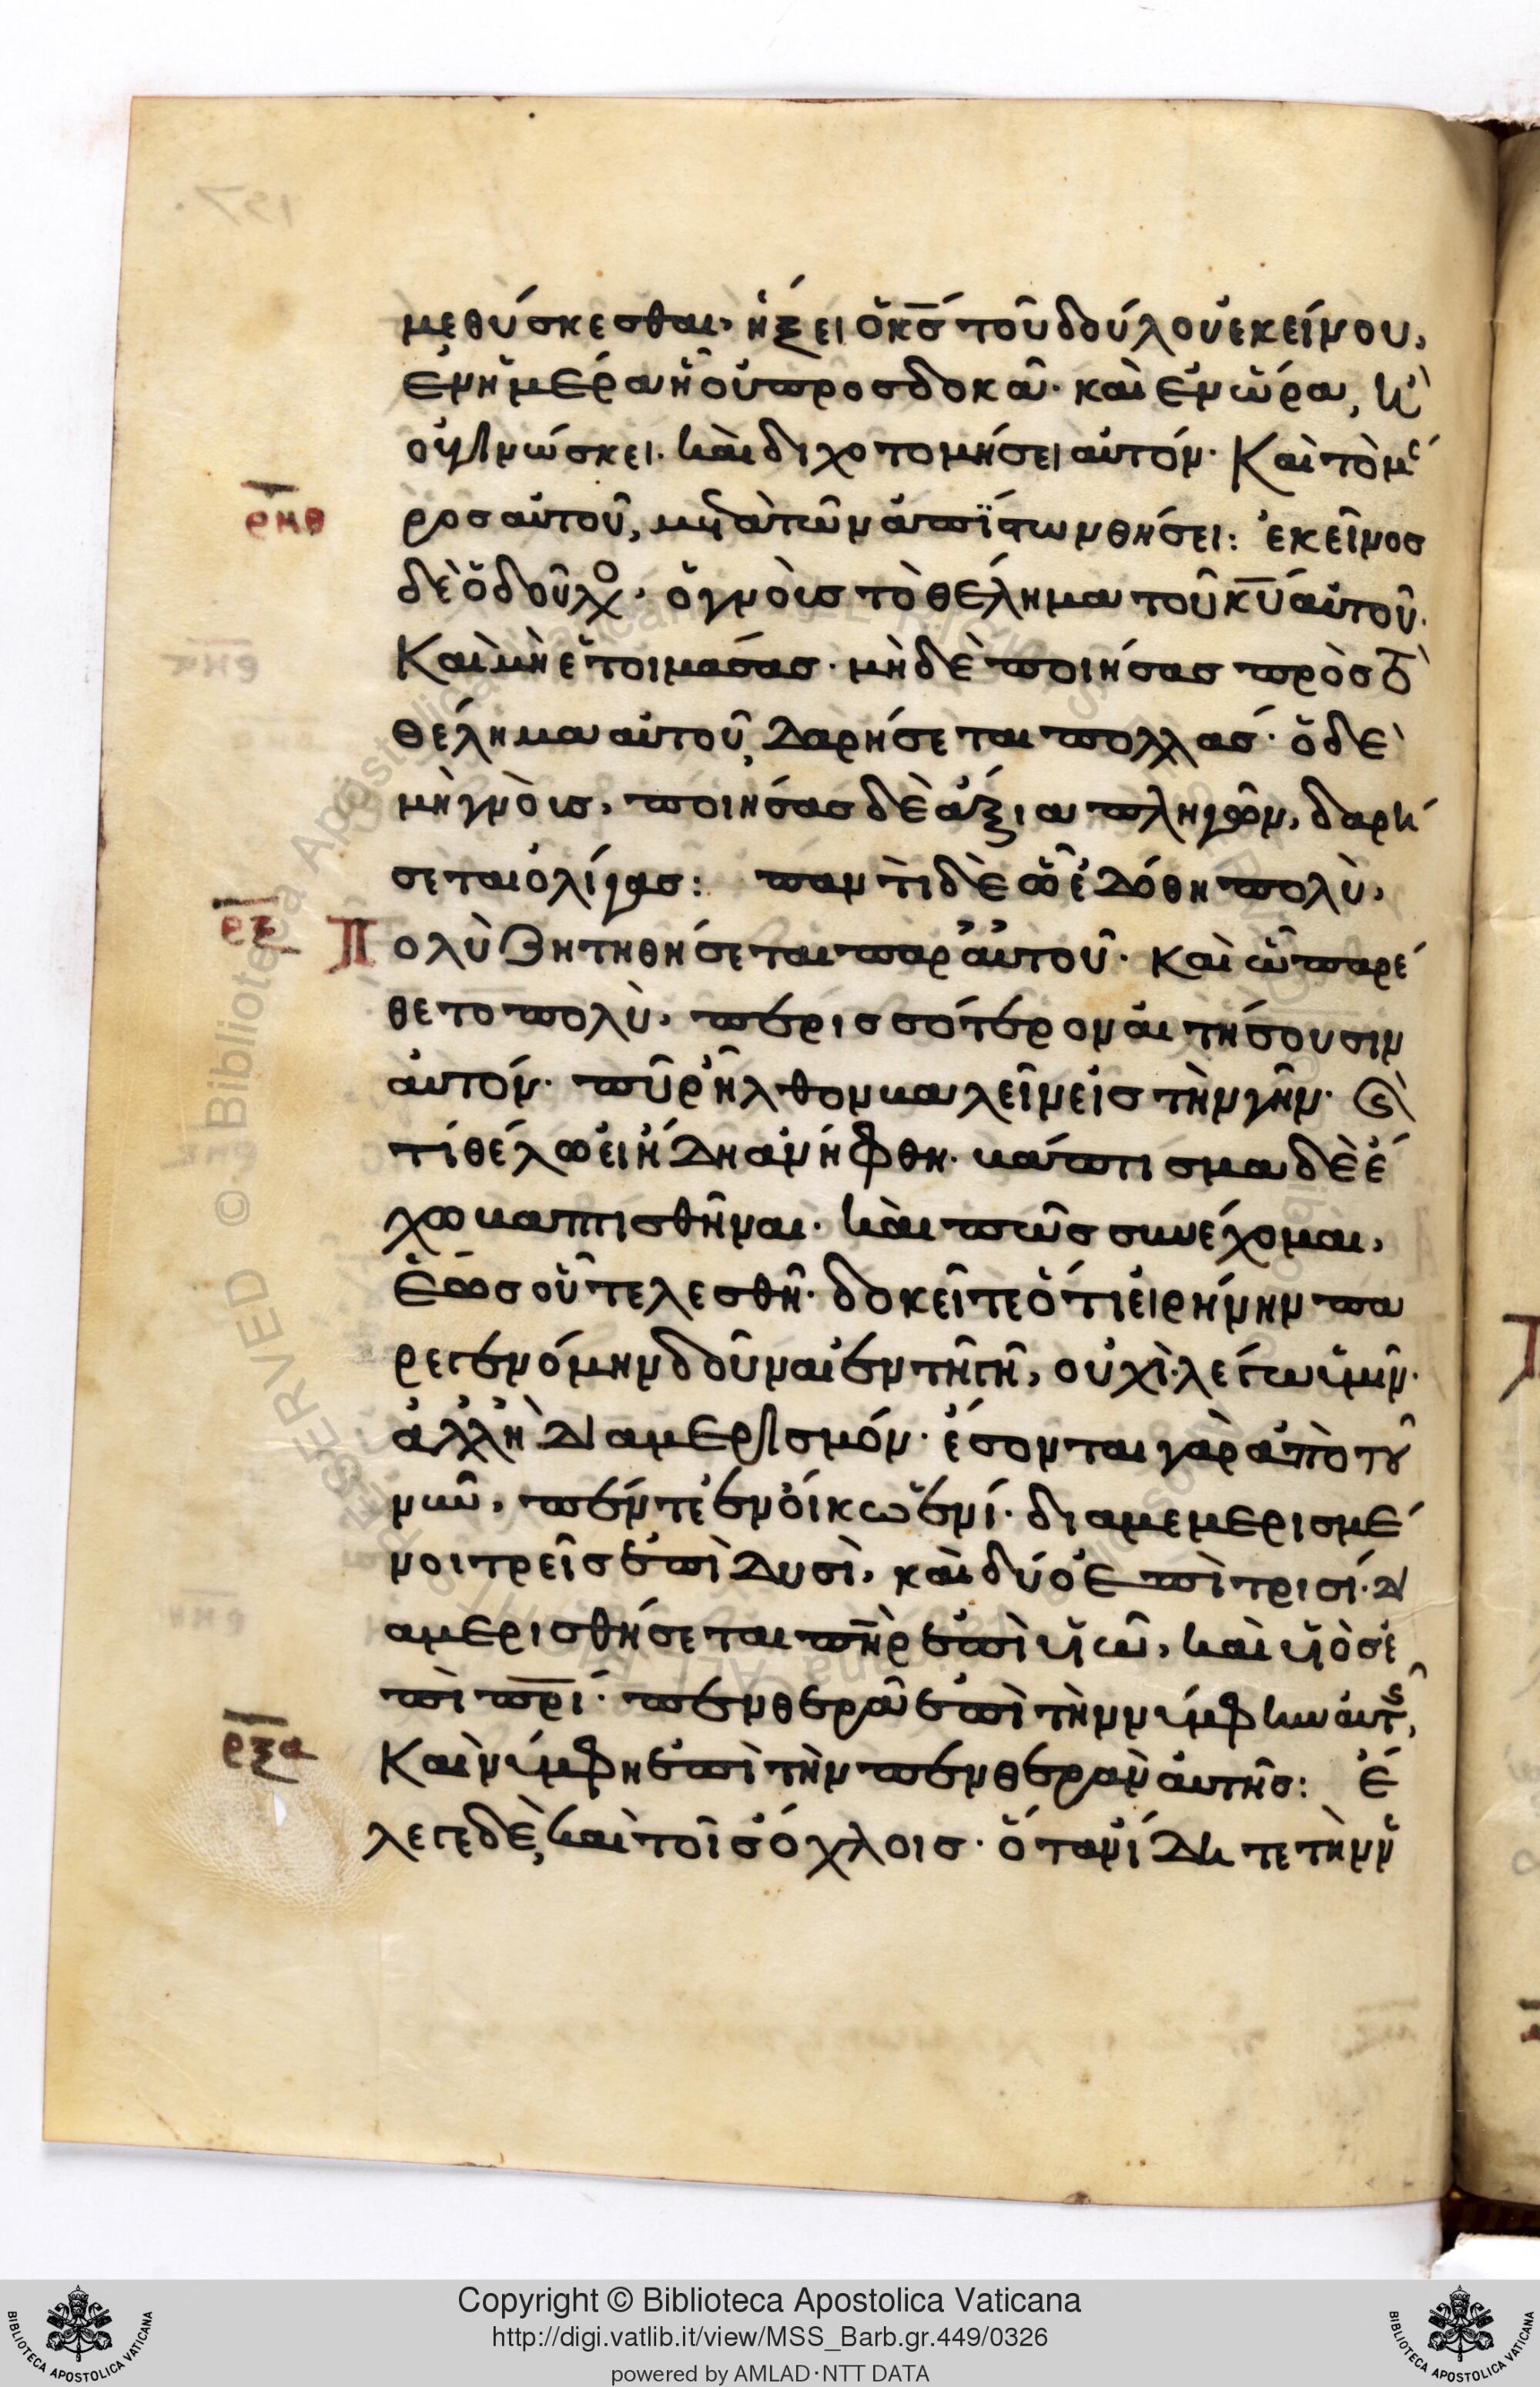 μεθύσκεσθαι, ἥξει ὁ κ̅ς̅ τοῦ δούλου ἐκείνου,
ἐν ἡμέρα ἧ οὐ προσδοκᾶ· καὶ ἐν ὥρα, ἧ
οὐ γινώσκει. καὶ διχοτομήσει αὐτόν· Καὶ τὸ μέ
ρος αὐτοῦ, μετὰ τῶν ἀπίστων θήσει: ἐκεῖνος
ρ̅μ̅θ̅
δὲ ὁ δοῦλος· ὁ γνοὺς τὸ θέλημα τοῦ κ̅υ̅ αὐτοῦ.
Καὶ μὴ ἑτοιμάσας· μὴ δὲ ποιήσας πρὸς τὸ
θέλημα αὐτοῦ, δαρήσεται πολλάς· ὁ δὲ
μὴ γνοὺς, ποιήσας δὲ ἄξια πληγῶν, δαρή
σεται ὀλίγας: παντὶ δὲ ὧ ἐδόθη πολὺ,
ρ̅ξ̅
Πολὺ ζητηθήσεται παρ' αὐτοῦ· καὶ ὧ παρέ
θετο πολὺ, περισσότερον αἰτήσουσιν
αὐτόν· πῦρ ἦλθον βαλεῖν εἰς τὴν γῆν· καὶ
τί θέλω εἰ ἤδη ἀνήφθη· βάπτισμα δὲ ἔ
χω βαπτισθῆναι· καὶ πῶς συνέχομαι,
ἕως οὗ τελεσθῆ· δοκεῖτε ὅτι εἰρήνην πα
ρεγενόμην δοῦναι ἐν τῆ γῆ, οὐχὶ· λέγω ὑμῖν·
ἀλλ' ἢ διαμερισμόν· ἔσονται γὰρ ἀπὸ τοῦ
νῦν, πέντε ἐν οἴκω ἑνί· διαμεμερισμέ
νοι τρεῖς ἐπὶ δυσὶ, καὶ δύο ἐπὶ τρισί· δι
αμερισθήσεται π̅η̅ρ̅ ἐπὶ υἱῶ, καὶ υἱὸς ἐ
πὶ π̅ρ̅ι̅· πενθερὰ ἐπὶ τὴν νύμφην αὐτῆς,
Καὶ νύμφη ἐπὶ τὴν πενθερὰν αὐτῆς: Ἔ
ρ̅ξ̅α̅
λεγε δὲ, καὶ τοῖς ὄχλοις· ὅταν ἴδητε τὴν ν
Copyright © Biblioteca Apostolica Vaticana
http://digi.vatlib.it/view/MSS_Barb.gr.449/0326
powered by AMLAD·NTT DATA
BIBLIOTECA APOSTOLICA VATICANA
BIBLIOTECA APOSTOLICA VATICANA